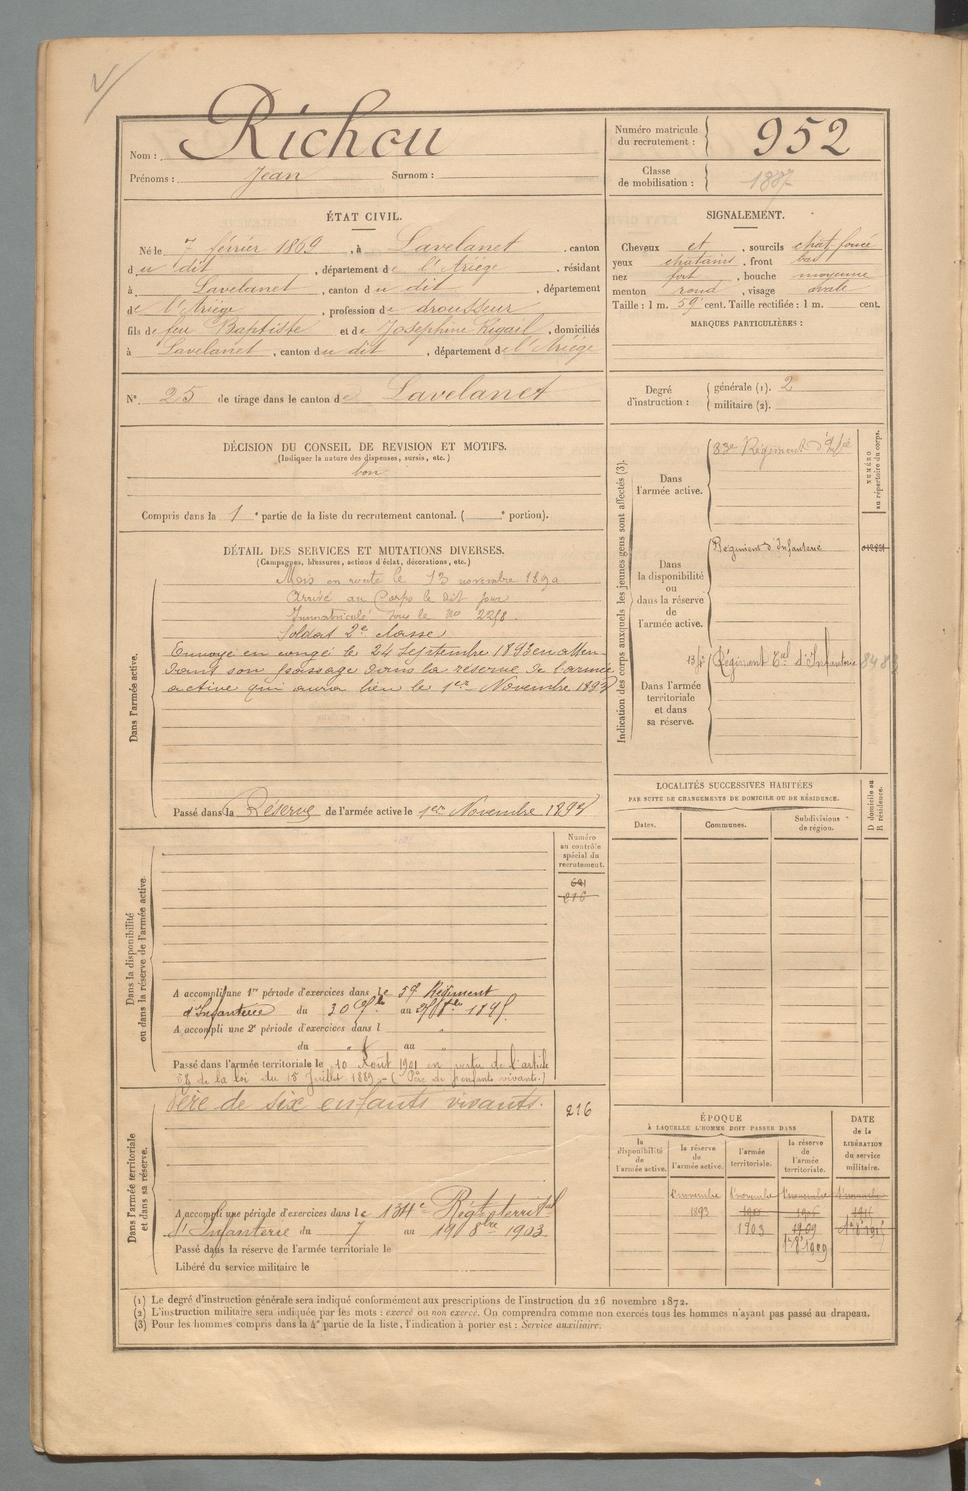 Nom : Richou
Prénoms : Jean Surnom :
Numéro matricule du recrutement : 952
Classe de mobilisation : 1887
ÉTAT CIVIL.
Né le 7 février 1869, à Lavelanet, canton
du dit, département de l'Ariége, résidant
à Lavelanet, canton du dit, département
de l'Ariége, profession de drousseur
fils de feu Baptiste et de Joséphine Rigail, domiciliés
à Lavelanet, canton du dit, département de l'Ariége
N° 25 de tirage dans le canton de Lavelanet
SIGNALEMENT.
Cheveux et, sourcils chât. foncé
yeux chatains, front bas
nez fort, bouche moyenne
menton rond, visage ovale
Taille : 1 m. 59 cent. Taille rectifiée : 1 m. cent.
MARQUES PARTICULIÈRES :
Degré d'instruction : générale (1). 2
militaire (2).
DÉCISION DU CONSEIL DE REVISION ET MOTIFS.
(Indiquer la nature des dispenses, sursis, etc.)
bon
Compris dans la 1e partie de la liste du recrutement cantonal. ( e portion).
DÉTAIL DES SERVICES ET MUTATIONS DIVERSES.
(Campagnes, blessures, actions d'éclat, décorations, etc.)
Dans l'armée active.
Mis en route le 13 novembre 1890
Arrivé au Corps le dit jour
Immatriculé sous le No
Soldat 2e classe
Envoyé en congé le 24 Septembre 1893 en atten-
dant son passage dans la réserve de l'armée
active qui aura lieu le 1er Novembre 1893
Passé dans la Réserve de l'armée active le 1er Novembre 1893
Indication des corps auxquels les jeunes gens sont affectés (3).
NUMÉRO au répertoire du corps.
Dans l'armée active.
83e Régiment d'Infie
Dans la disponibilité ou dans la réserve de l'armée active.
Régiment d'Infanterie
Dans l'armée territoriale et dans sa réserve.
Régiment Tal d'Infanterie
LOCALITÉS SUCCESSIVES HABITÉES
PAR SUITE DE CHANGEMENTS DE DOMICILE OU DE RÉSIDENCE.
Dates. Communes. Subdivisions de région. D domicile ou R résidence.
Dans la disponibilité ou dans la réserve de l'armée active
Numéro au contrôle spécial du recrutement.
216
A accompli une 1re période d'exercices dans le 59 Régiment
d'Infanterie du 30 au
A accompli une 2e période d'exercices dans l
du au
Passé dans l'armée territoriale le 10 Août 1901 en vertu de l'article
58 de la loi du 15 Juillet 1889 - (Père de enfants vivants.)
Dans l'armée territoriale et dans sa réserve.
Père de six enfants vivants.
216
A accompli une période d'exercices dans le 134e Régt territal
d'Infanterie du 7 au 19 8bre 1903
Passé dans la réserve de l'armée territoriale le
Libéré du service militaire le
ÉPOQUE
À LAQUELLE L'HOMME DOIT PASSER DANS
la disponibilité de l'armée active.
la réserve de l'armée active.
l'armée territoriale.
la réserve de l'armée territoriale.
DATE de la LIBÉRATION du service militaire.
1er novembre 1er novembre 1er novembre 1er novembre
1893
1903 1909
(1) Le degré d'instruction générale sera indiqué conformément aux prescriptions de l'instruction du 26 novembre 1872.
(2) L'instruction militaire sera indiquée par les mots : exercé ou non exercé. On comprendra comme non exercés tous les hommes n'ayant pas passé au drapeau.
(3) Pour les hommes compris dans la 4e partie de la liste, l'indication à porter est : Service auxiliaire.